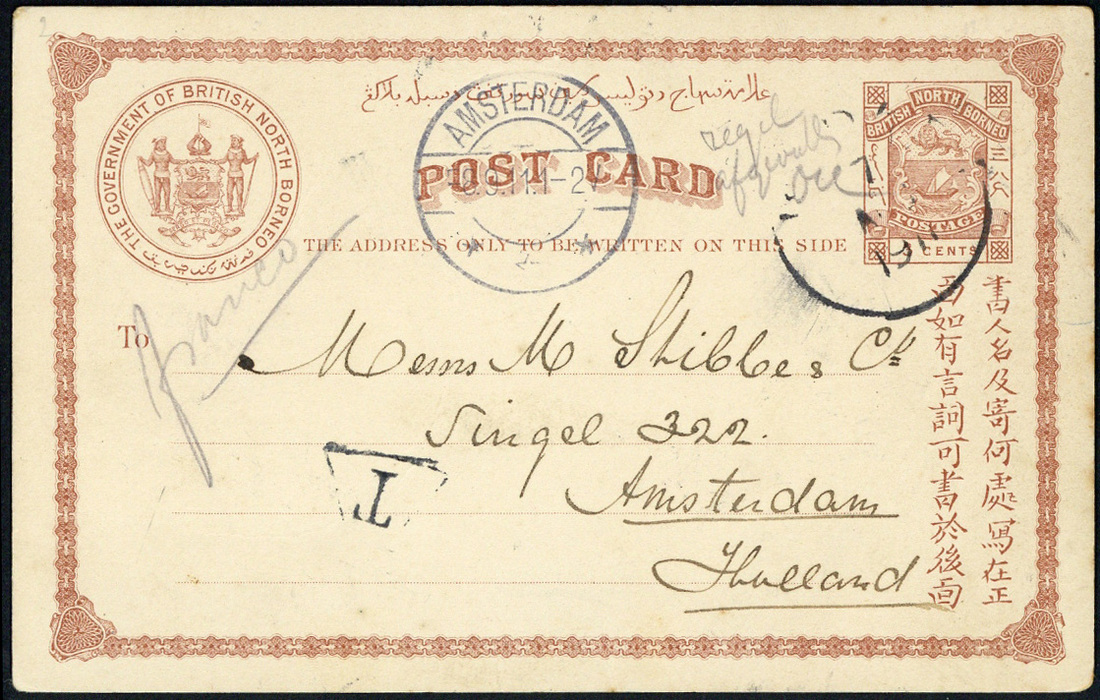 THE GOVERNMENT OF BRITISH NORTH BORNEO
AMSTERDAM
POST CARD
THE ADDRESS ONLY TO BE WRITTEN ON THIS SIDE
BRITISH NORTH BORNEO
POSTAGE
CENTS
1911
franco
To
Messrs M Shibbe & Co
Singel 322.
Amsterdam
Holland
T
書人名及寄何處寫在正
面如有言詞可書於後面